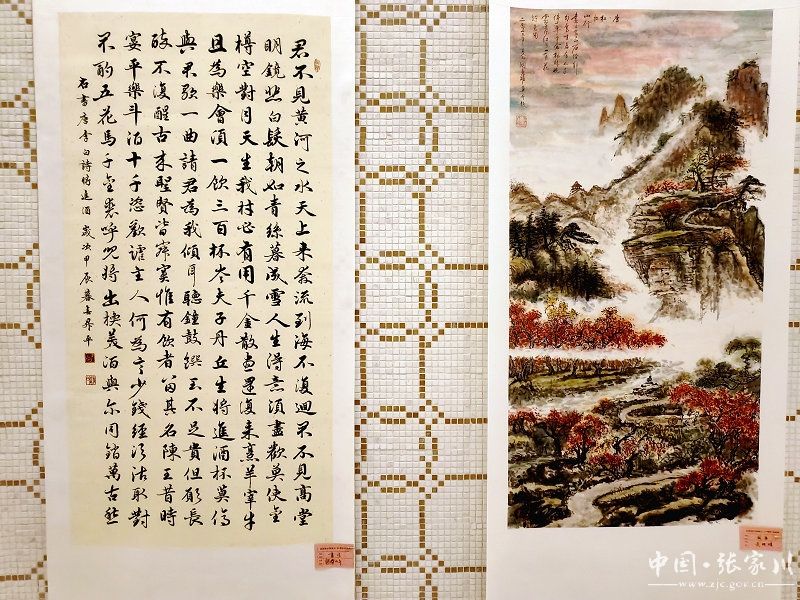 君不見黃河之水天上來奔流到海不復迴君不見高堂
明鏡悲白髮朝如青絲暮成雪人生得意須盡歡莫使金
樽空對月天生我材必有用千金散盡還復來烹羊宰牛
且為樂會須一飲三百杯岑夫子丹丘生將進酒杯莫停
與君歌一曲請君為我傾耳聽鐘鼓饌玉不足貴但願長
醉不復醒古來聖賢皆寂寞惟有飲者留其名陳王昔時
宴平樂斗酒十千恣歡謔主人何為言少錢徑須沽取對
君酌五花馬千金裘呼兒將出換美酒與爾同銷萬古愁
右書唐李白詩將進酒 歲次甲辰暮春昇平
山行
中国·张家川
www.zjc.gov.cn